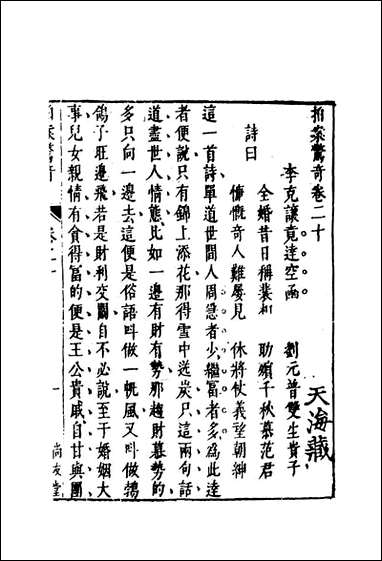 拍案驚奇卷二十
李克讓竟達空函　劉元普雙生貴子
天海藏
詩曰
全婚昔日稱裴相　助殯千秋慕范君
慷慨奇人難屢見　休將仗義望朝紳
這一首詩單道世間人周急者少繼富者多為此達
者便說只有錦上添花那得雪中送炭只這兩句話
道盡世人情態比如一邊有財有勢那趨財慕勢的
多只向一邊去這便是俗語叫做一帆風又叫做鵓
鴿子旺邊飛若是財利交關自不必說至于婚姻大
事兒女親情有貪得富的便是王公貴戚自甘與團
拍案驚奇
卷二十
一
尚友堂